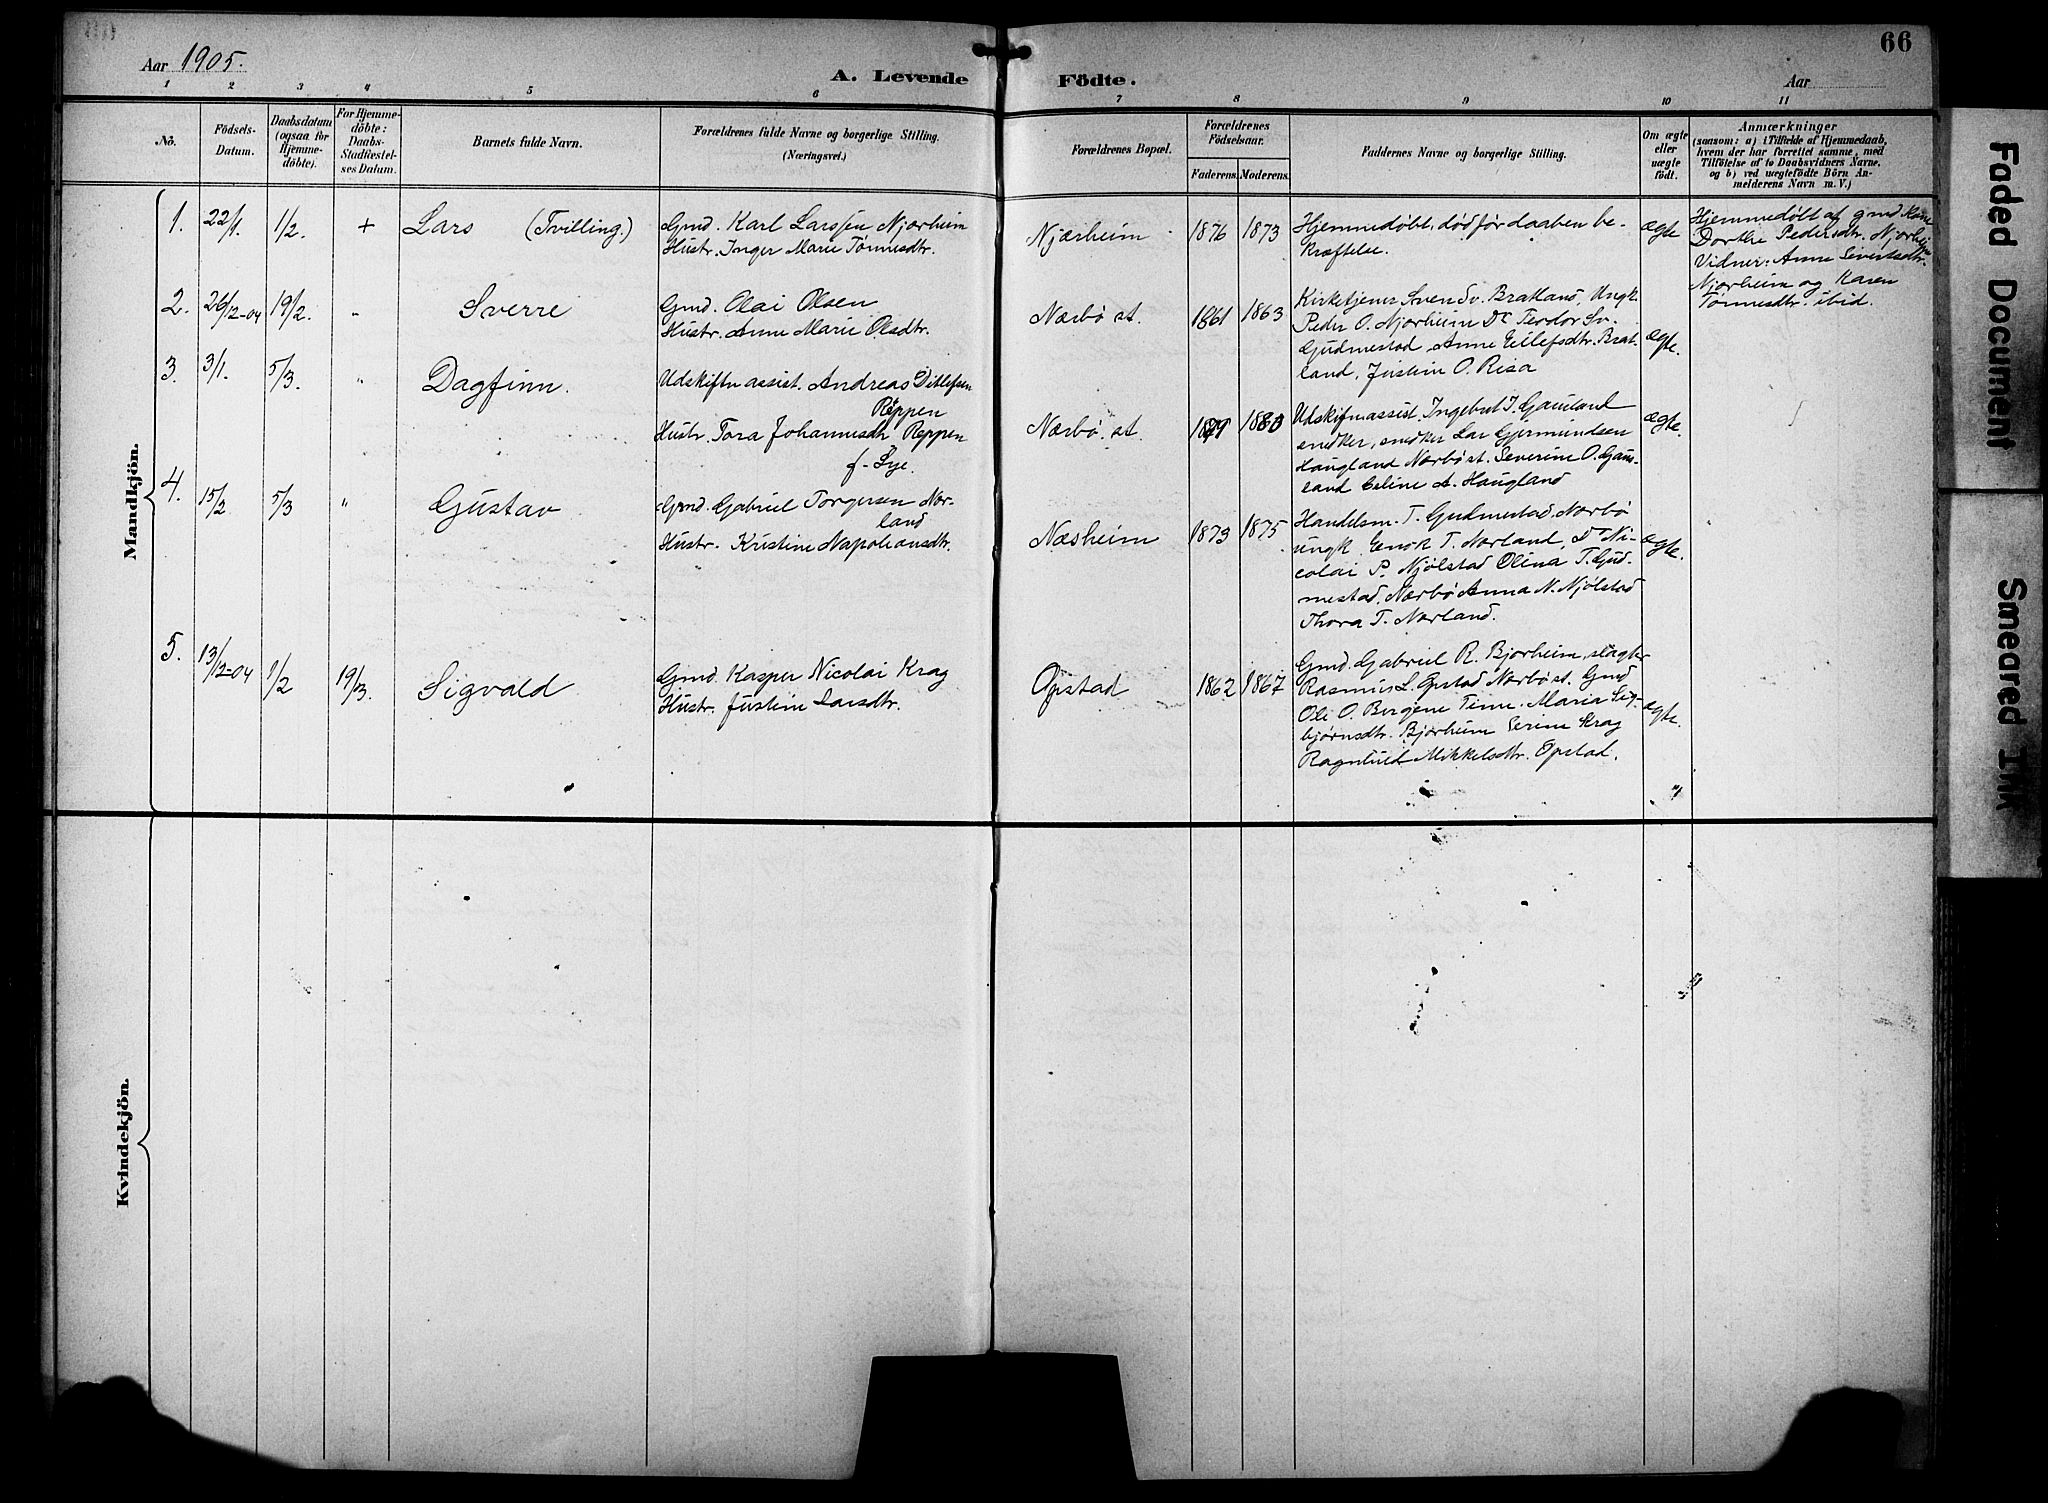 66
Aar 1905.
A. Levende Födte.
Aar
1 2 3 4 5 6 7 8 9 10 11
No.
Födsels-Datum.
Daabsdatum (ogsaa for Hjemme-döbte).
For Hjemme-döbte: Daabs-Stadfæstel-ses Datum.
Barnets fulde Navn.
Forældrenes fulde Navne og borgerlige Stilling.
(Næringsvei.)
Forældrenes Bopæl.
Forældrenes Födselsaar.
Faderens. Moderens.
Faddernes Navne og borgerlige Stilling.
Om ægte eller uægte födt.
Anmærkninger
(saasom: a) i Tilfælde af Hjemmedaab,
hvem der har forrettet samme, med
Tilföielse af to Daabsvidners Navne,
og b) ved uægtefödte Börn An-
melderens Navn m. V.)
Mandkjön.
1. 22/1. 1/2. + Lars (Tvilling)
Gmd. Karl Larssen Njærheim
Hustr. Inger Marie Tönnesdtr.
Njærheim 1876 1873
Hjemmedöbt, död för daaben be-
kræftelse.
ægte
Hjemmedöbt af gmd kone
Dorthe Pedersdtr. Njorheim
Vidner: Anne Sivertsdtr.
Njorheim og Karen
Tönnesdtr. ibid.
2. 26/12-04 19/2. " Sverre
Gmd. Olai Olsen
Hustr. Anne Marie Olsdtr.
Nærbö st. 1861 1863
Kirketjener Sven Sv. Bratland, Ungk.
Peder O. Njorheim Do Teodor Sv.
Gudmestad, Anne Eilefsdtr. Brat-
land, Justin O. Risa
ægte.
3. 3/1. 5/3. " Dagfinn.
Udskiftn assist. Andreas Ditlefsen
Reppen
Hustr. Tora Johannesdtr Reppen
f. Lye.
Nærbö. st. 1879 1880
Udskifnassist. Ingebret J. Gauland
snedker, snedker Lar Gjermundsen
Haugland Nærbö st. Severine O. Gau-
land Eline A. Haugland
ægte.
4. 15/2 5/3 " Gustav
Gmd. Gabriel Torgersen Nær-
land
Hustr. Kristine Napoleansdtr.
Næsheim 1873 1875
Handelsm. T. Gudmestad Nærbö
ungk. Enok T. Nærland, Do Ni-
colai P. Njölstad Olina T. Gud-
mestad, Nærbö Anna N. Njölstad
Thora T. Nærland.
ægte.
5. 13/12-04 1/2 19/3. Sigvald
Gmd. Kasper Nicolai Krag
Hustr. Justine Larsdtr.
Opstad 1862 1867
Gmd. Gabriel R. Bjorheim, slagter
Rasmus L. Opstad Nærbö st. Gmd
Ole O. Bergene Time. Maria Sig-
bjørnsdtr. Bjorheim Serine Krag
Ragnhild Mikkelsdtr. Opstad.
ægte.
Kvindekjön.
Faded Document
Smeared Ink